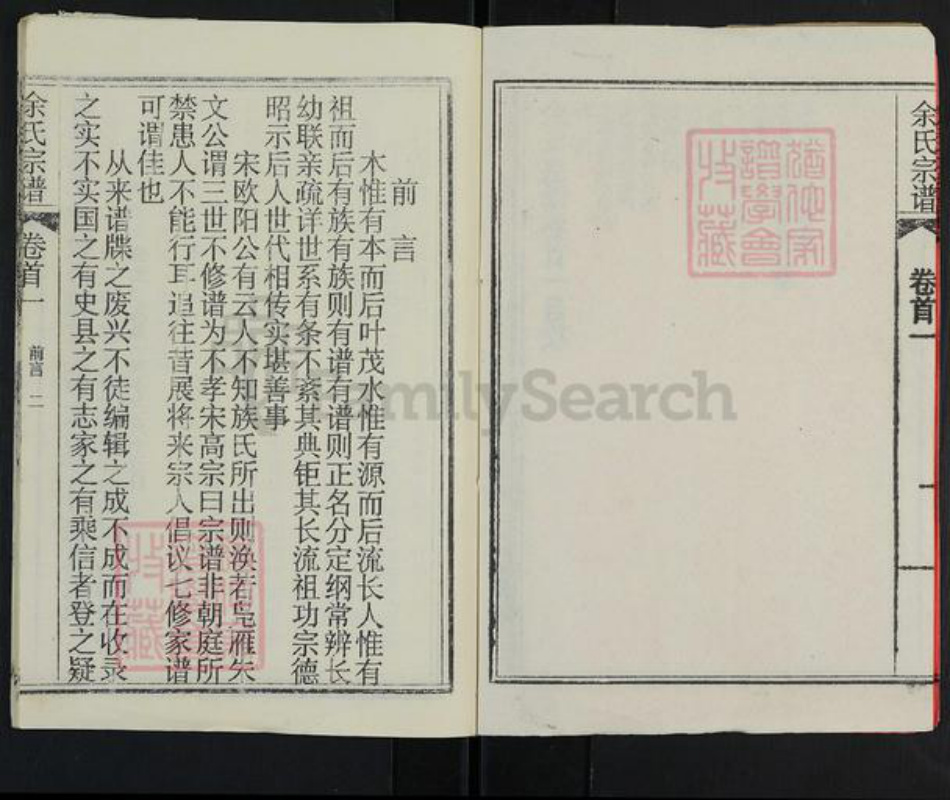 余氏宗谱
卷首一
猶他家
譜學會
收藏
前言
木惟有本而后叶茂水惟有源而后流长人惟有
祖而后有族有族则有谱有谱则正名分定纲常辨长
幼联亲疏详世系有条不紊其典钜其长流祖功宗德
昭示后人世代相传实堪善事
宋欧阳公有云人不知族氏所出则涣若凫雁朱
文公谓三世不修谱为不孝宋高宗曰宗谱非朝庭所
禁患人不能行耳追往昔展将来宗人倡议七修家谱
可谓佳也
从来谱牒之废兴不徒编辑之成不成而在收录
之实不实国之有史县之有志家之有乘信者登之疑
余氏宗谱
卷首一
前言 二
收藏
FamilySearch